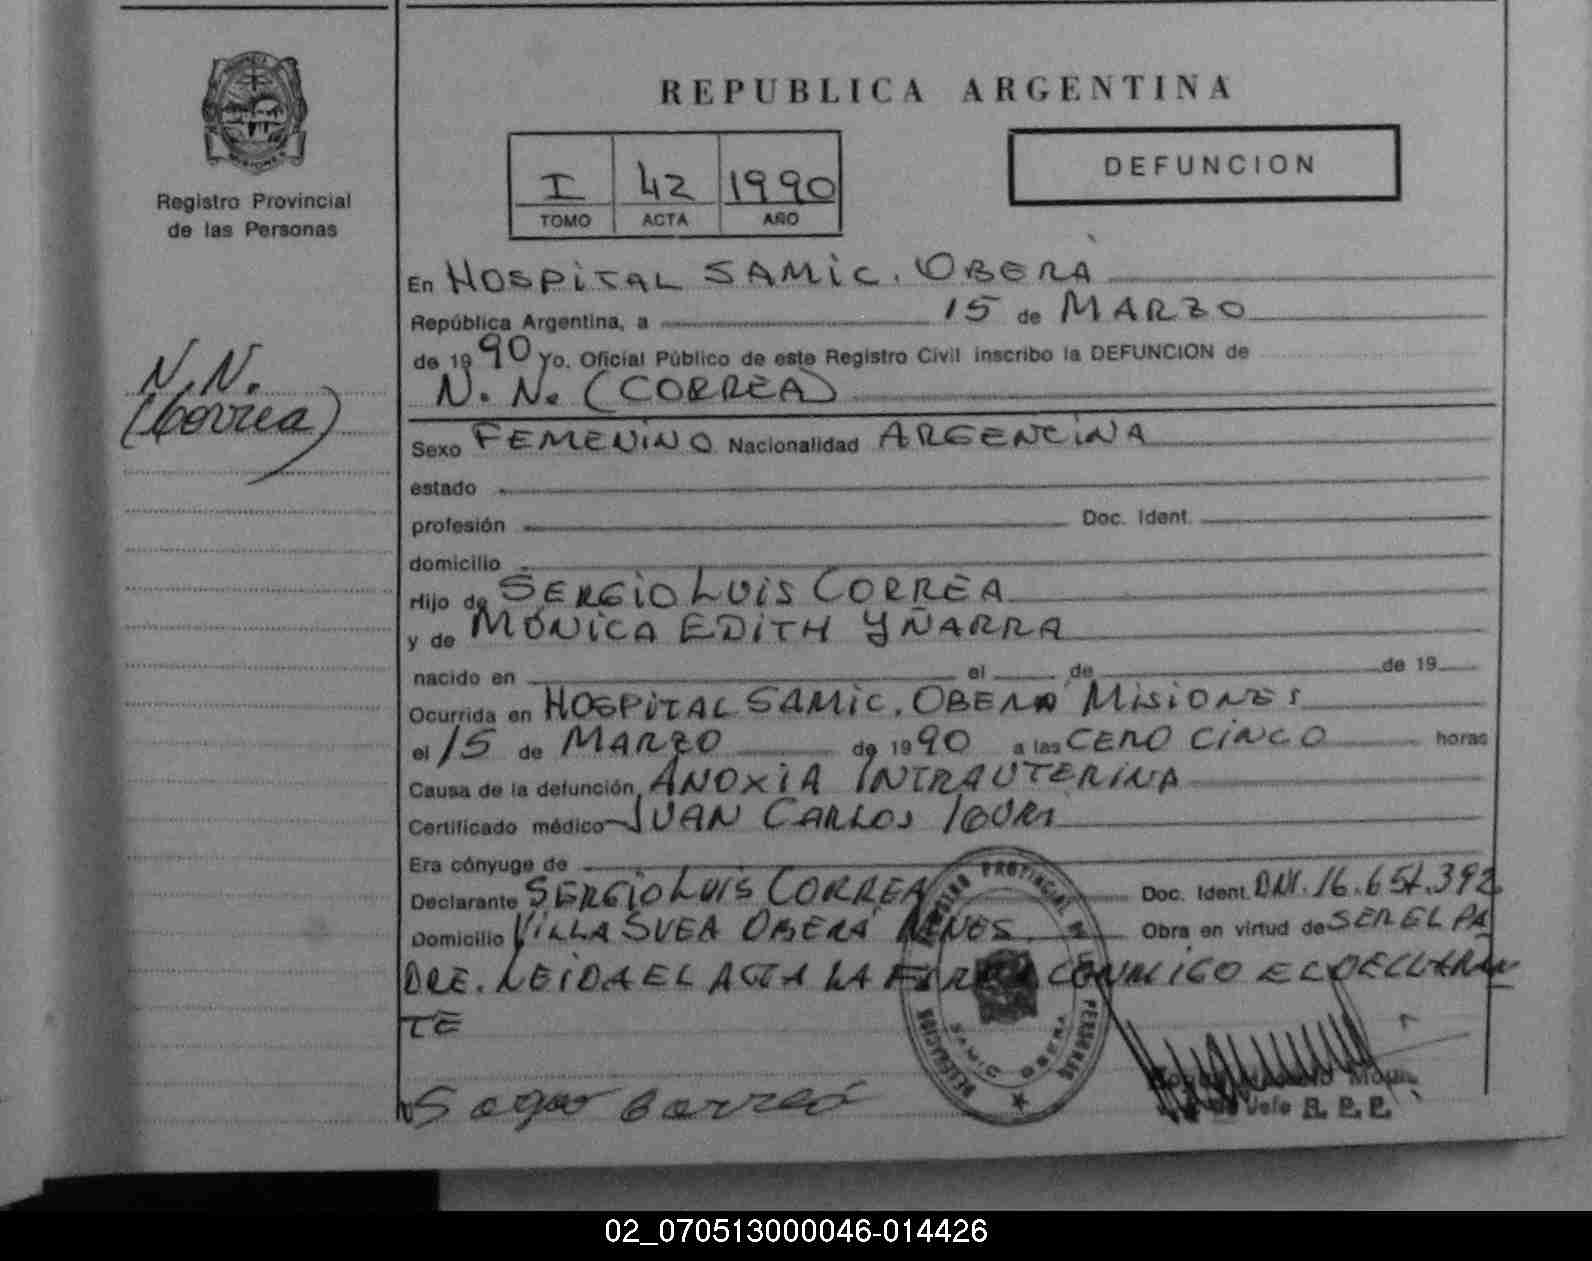 REPUBLICA ARGENTINA
MISIONES
Registro Provincial
de las Personas
I 42 1990
TOMO ACTA AÑO
DEFUNCION
N.N.
(Correa)
En HOSPITAL SAMIC. OBERÁ
República Argentina, a 15 de MARZO
de 1990 Yo, Oficial Público de este Registro Civil inscribo la DEFUNCION de
N. N. (CORREA)
Sexo FEMENINO Nacionalidad ARGENTINA
estado
profesión Doc. Ident.
domicilio
Hijo de SERGIO LUIS CORREA
y de MÓNICA EDITH YÑARRA
nacido en el de de 19
Ocurrida en HOSPITAL SAMIC. OBERÁ MISIONES
el 15 de MARZO de 1990 a las CERO CINCO horas
Causa de la defunción ANOXIA INTRAUTERINA
Certificado médico JUAN CARLOS
Era cónyuge de
Declarante SERGIO LUIS CORREA Doc. Ident. DNI. 16.651.392
Domicilio VILLA SVEA OBERÁ Obra en virtud de SER EL PA
DRE. LEIDA EL ACTA LA FIRMA CONMIGO EL DECLARAN
TE
REGISTRO PROVINCIAL DE LAS PERSONAS
DELEGACION
SAMIC OBERA
Correa
Jefe R. P. P.
02_070513000046-014426